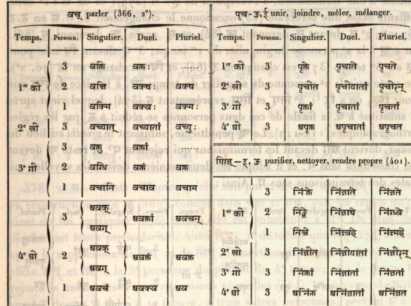 वच् parler (366, 2°).
Temps. Person. Singulier. Duel. Pluriel.
1er को 3 वक्ति वक्तः
2 वक्षि वक्थः वक्थ
1 वच्मि वच्वः वच्मः
2e लो 3 वच्यात् वच्यातां वच्युः
3e गो 3 वक्तु वक्तां
2 वग्धि वक्तं वक्त
1 वचानि वचाव वचाम
4e घो 3 अवक् अवक्तां अवचन्
अवग्
2 अवक् अवक्तं अवक्त
अवग्
1 अवचं अवच्व अवच्म
पृच unir, joindre, mêler, mélanger.
Temps. Person. Singulier. Duel. Pluriel.
1er को 3 पृक्ते पृचाते पृचते
2e लो 3 पृचीत पृचीयातां पृचीरन्
3e गो 3 पृक्तां पृचातां पृचतां
4e घो 3 अपृक्त अपृचातां अपृचत
purifier, nettoyer, rendre propre (401).
1er को 3 निंक्ते निंजाते निंजते
2 निंक्षे निंजाथे निंग्ध्वे
1 निंजे निंज्वहे निंज्महे
2e लो 3 निंजीत निंजीयातां निंजीरन्
3e गो 3 निंक्तां निंजातां निंजतां
4e घो 3 अनिंक्त अनिंजातां अनिंजत